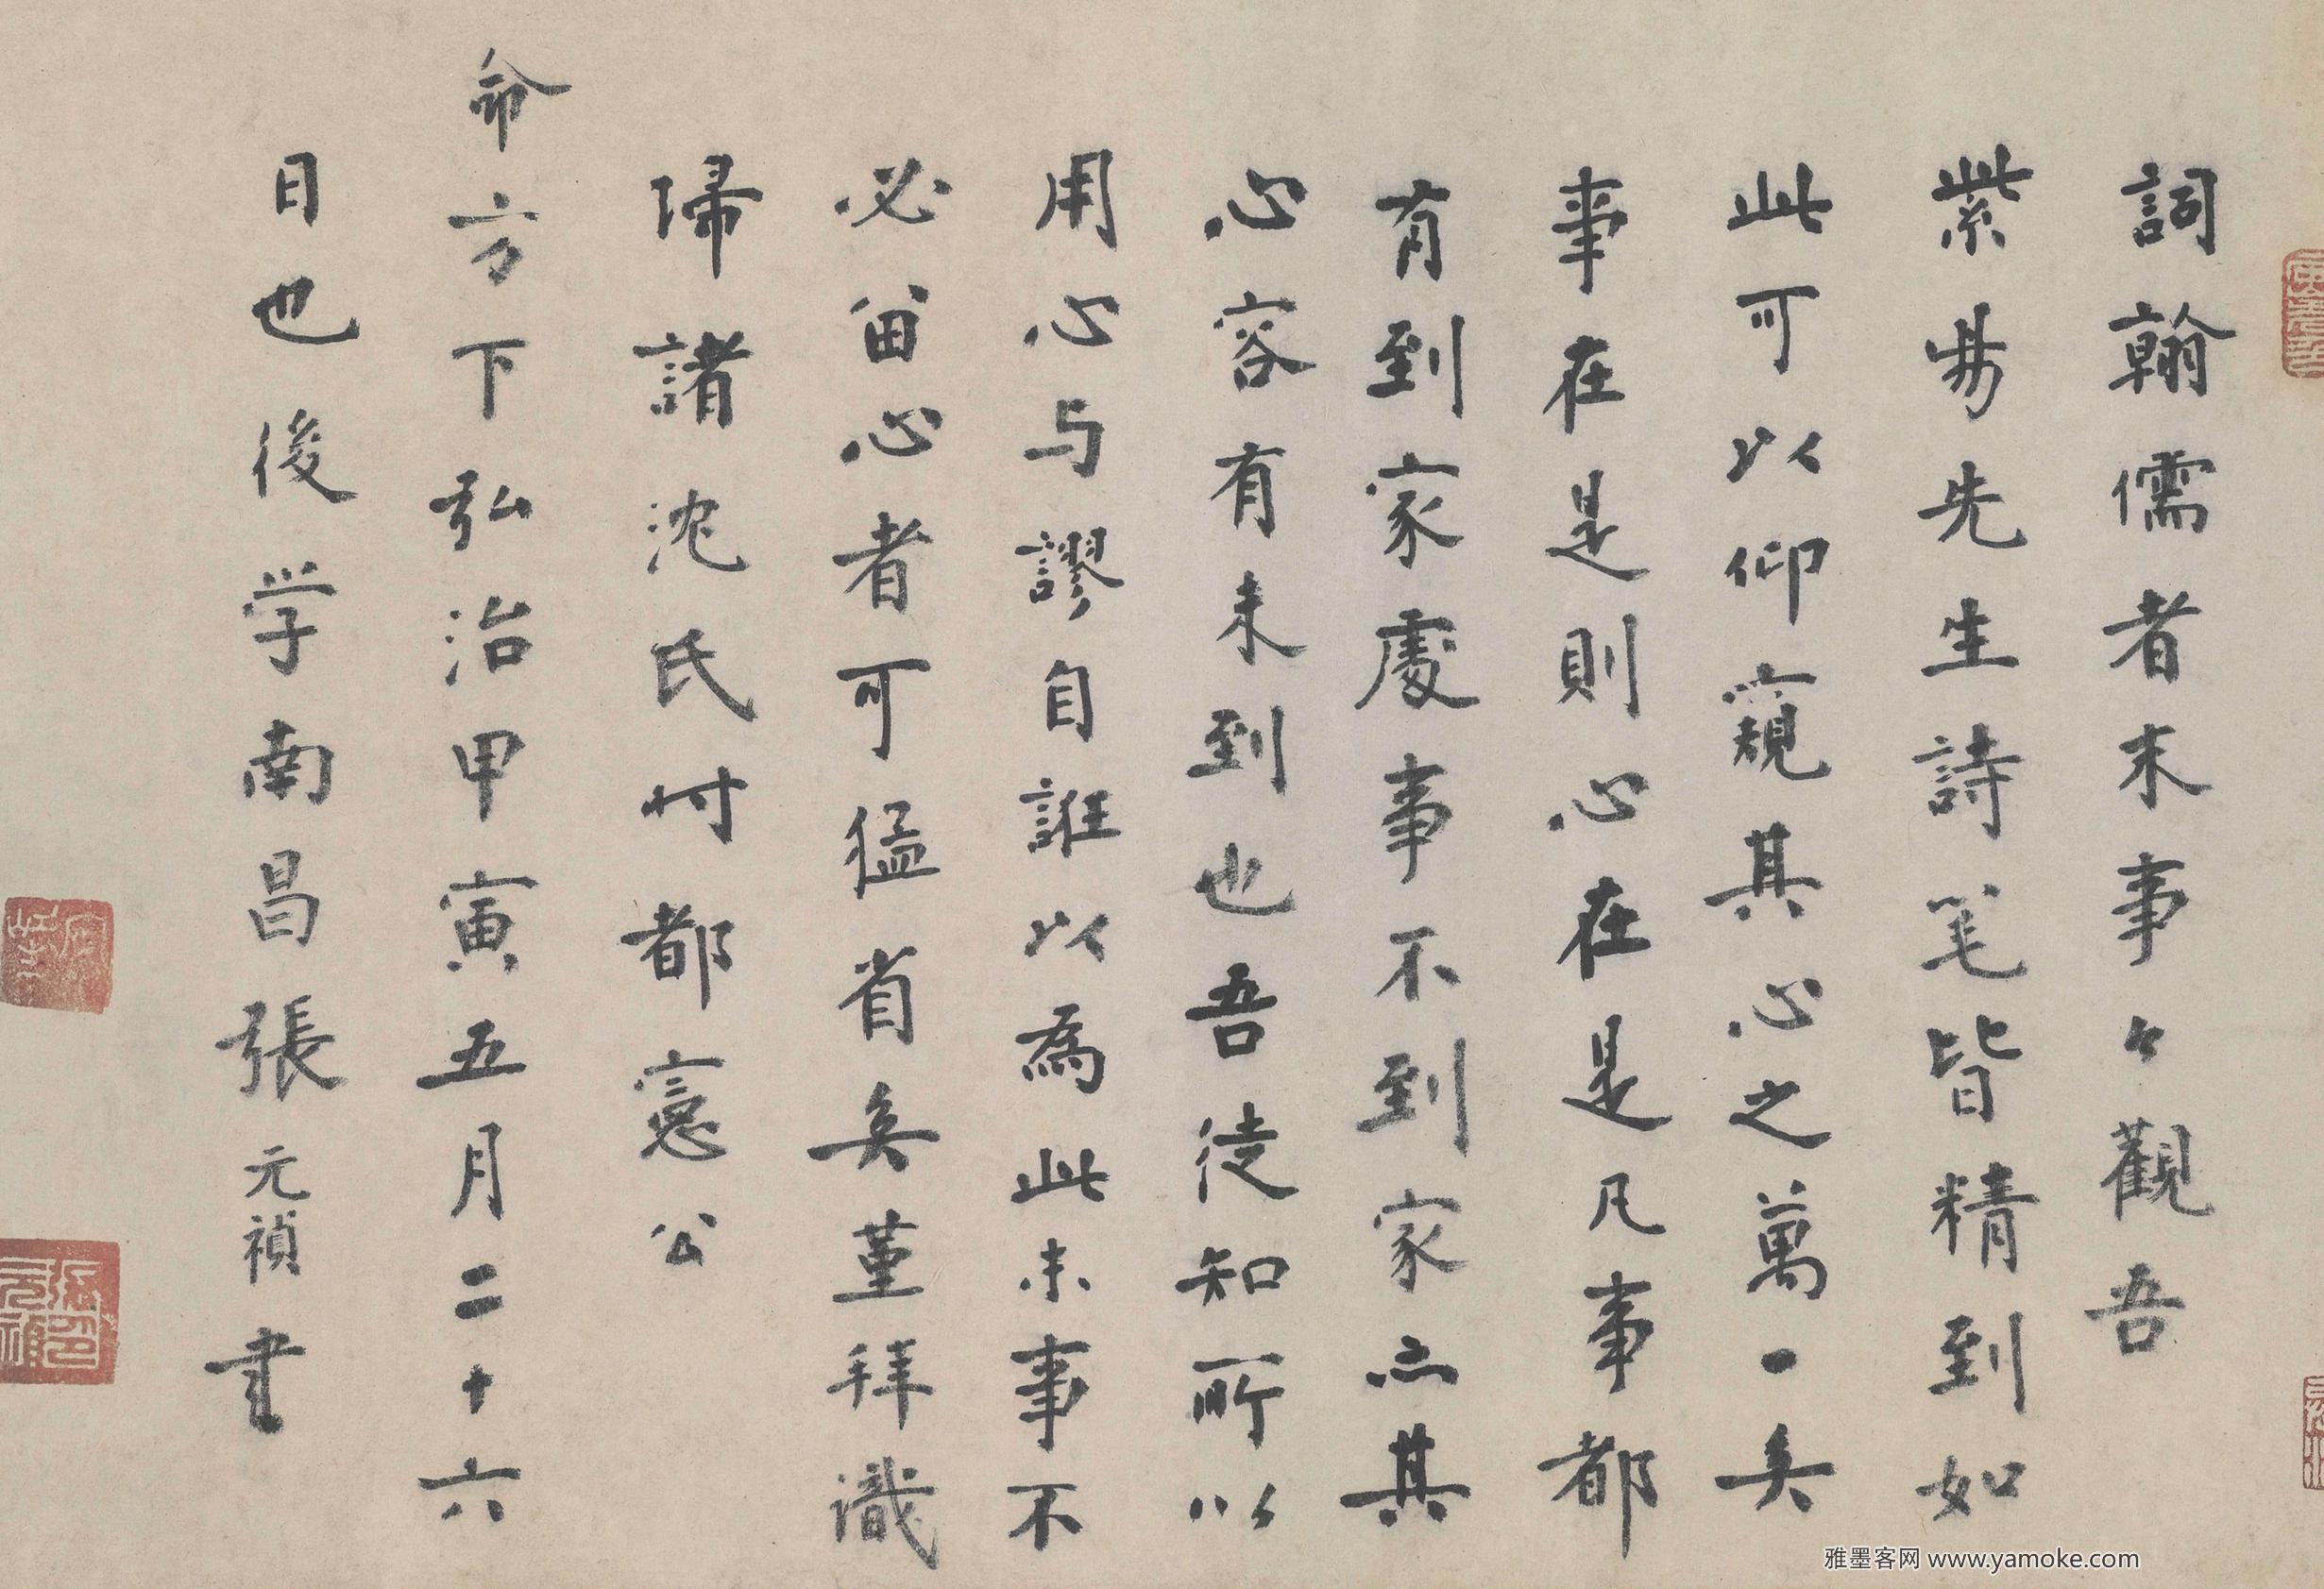 詞翰儒者末事々觀吾
紫昜先生詩笔皆精到如
此可以仰窺其心之萬一矣
事在是則心在是凡事都
有到家處事不到家亦其
心容有未到也吾徒知所以
用心与謬自誑以為此末事不
必留心者可猛省矣堇拜識
歸諸沈氏时都憲公
命方下弘治甲寅五月二十六
日也後学南昌張元禎書
雅墨客网 www.yamoke.com